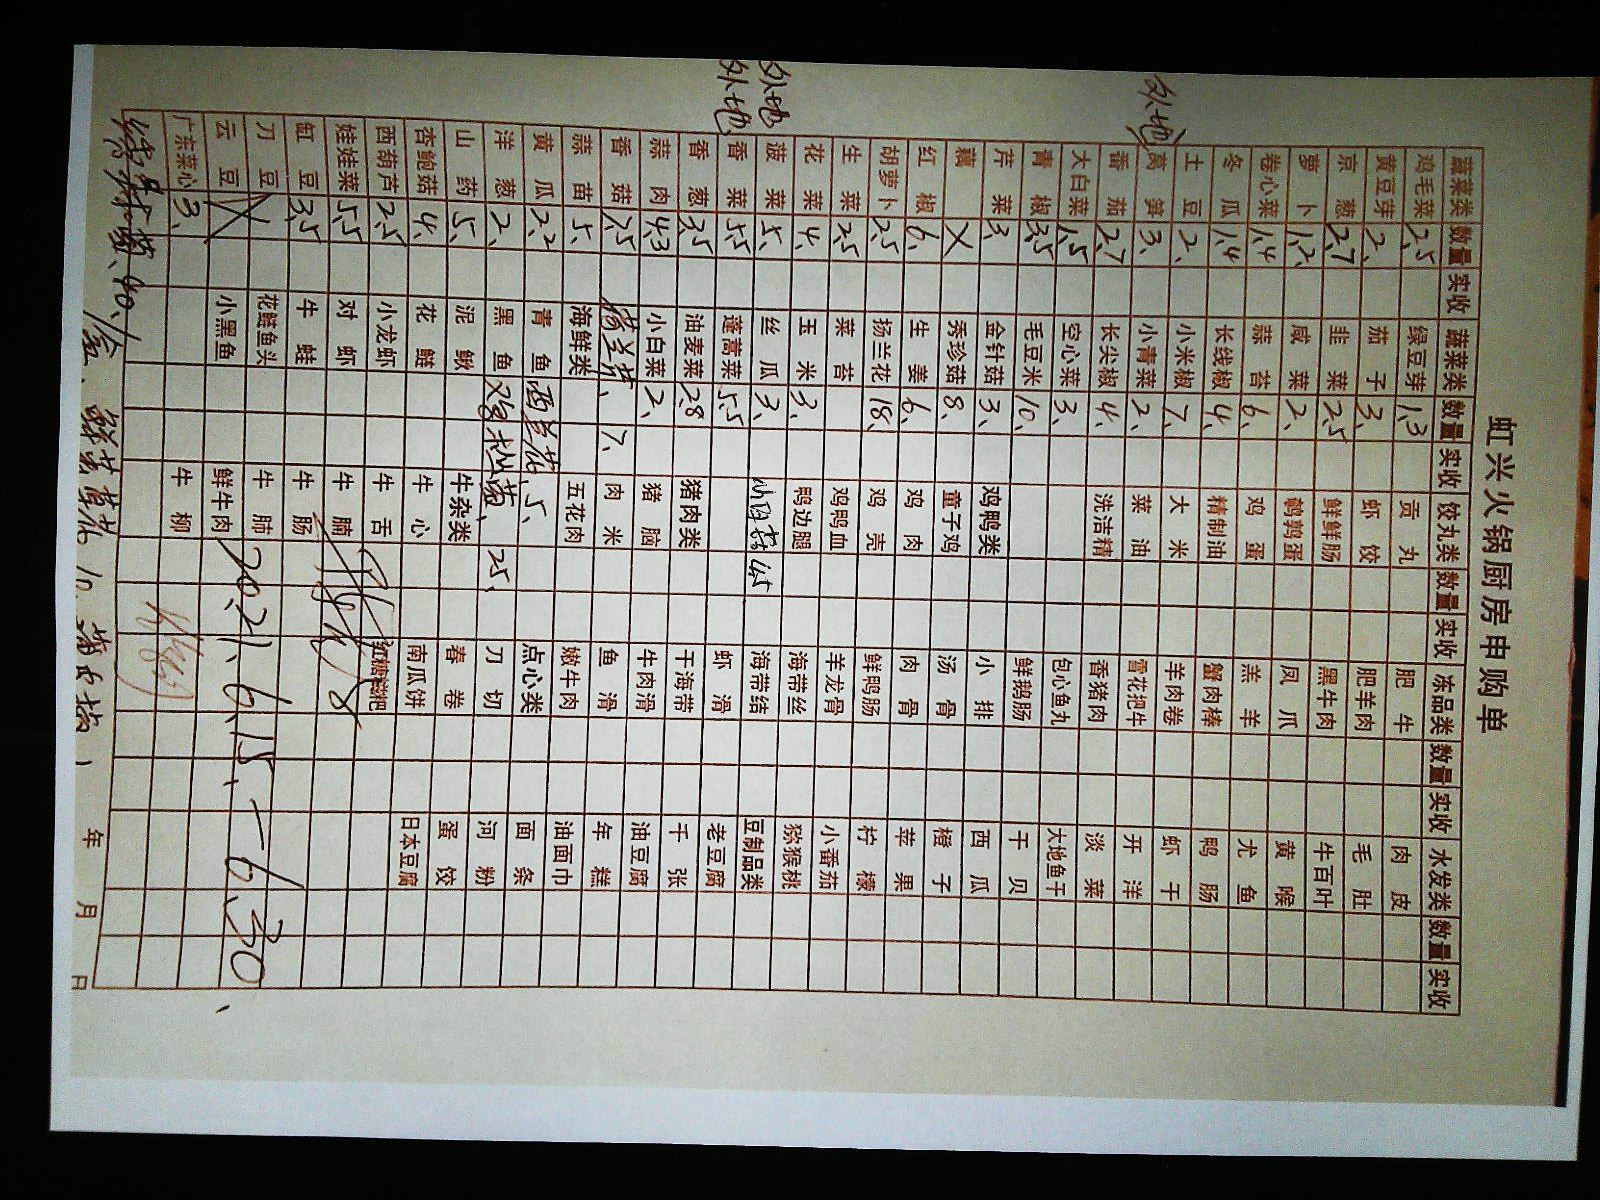 虹兴火锅厨房申购单
蔬菜类 数量 实收 蔬菜类 数量 实收 饺丸类 数量 实收 冻品类 数量 实收 水发类 数量 实收
鸡毛菜 2.5 绿豆芽 1.3 贡丸 肥牛 肉皮
黄豆芽 2. 茄子 3. 虾饺 肥羊肉 毛肚
京葱 2.7 韭菜 2.5 鲜鲜肠 黑牛肉 牛百叶
萝卜 1.2 咸菜 2. 鹌鹑蛋 凤爪 黄喉
卷心菜 1.4 蒜苔 6. 鸡蛋 羔羊 尤鱼
冬瓜 1.4 长线椒 4. 精制油 蟹肉棒 鸭肠
土豆 2. 小米椒 7. 大米 羊肉卷 虾干
外地 莴笋 3. 小青菜 2. 菜油 雪花把牛 开洋
番茄 2.7 长尖椒 4. 洗洁精 香猪肉 淡菜
大白菜 1.5 空心菜 3. 包心鱼丸 大地鱼干
青椒 3.5 毛豆米 10. 鲜鹅肠 干贝
芹菜 3. 金针菇 3. 鸡鸭类 小排 西瓜
藕 X 秀珍菇 8. 童子鸡 汤骨 橙子
红椒 6. 生姜 6. 鸡肉 肉骨 苹果
胡萝卜 2.5 扬兰花 18. 鸡壳 鲜鸭肠 柠檬
生菜 2.5 菜苔 鸡鸭血 羊龙骨 小番茄
花菜 4. 玉米 3. 鸭边腿 海带丝 猕猴桃
外地 菠菜 5. 丝瓜 3. 海带结 豆制品类
外地 香菜 5.5 蓬蒿菜 5.5 虾滑 老豆腐
香葱 3.5 油麦菜 2.8 猪肉类 干海带 千张
蒜肉 4.3 小白菜 2. 猪脑 牛肉滑 油豆腐
香菇 7.5 7. 肉米 鱼滑 年糕
蒜苗 5. 海鲜类 五花肉 嫩牛肉 油面巾
黄瓜 2.2 青鱼 西兰花.5. 点心类 面条
洋葱 2. 黑鱼 25. 刀切 河粉
山药 5. 泥鳅 牛杂类 春卷 蛋饺
杏鲍菇 4. 花鲢 牛心 南瓜饼 日本豆腐
西葫芦 2.5 小龙虾 牛舌 红糖糍粑
娃娃菜 5.5 对虾 牛腩
缸豆 3.5 牛蛙 牛肠
刀豆 花鲢鱼头 牛肺
云豆 小黑鱼 鲜牛肉 2021.6.15.-6.30.
广东菜心 3. 牛柳
年 月 日